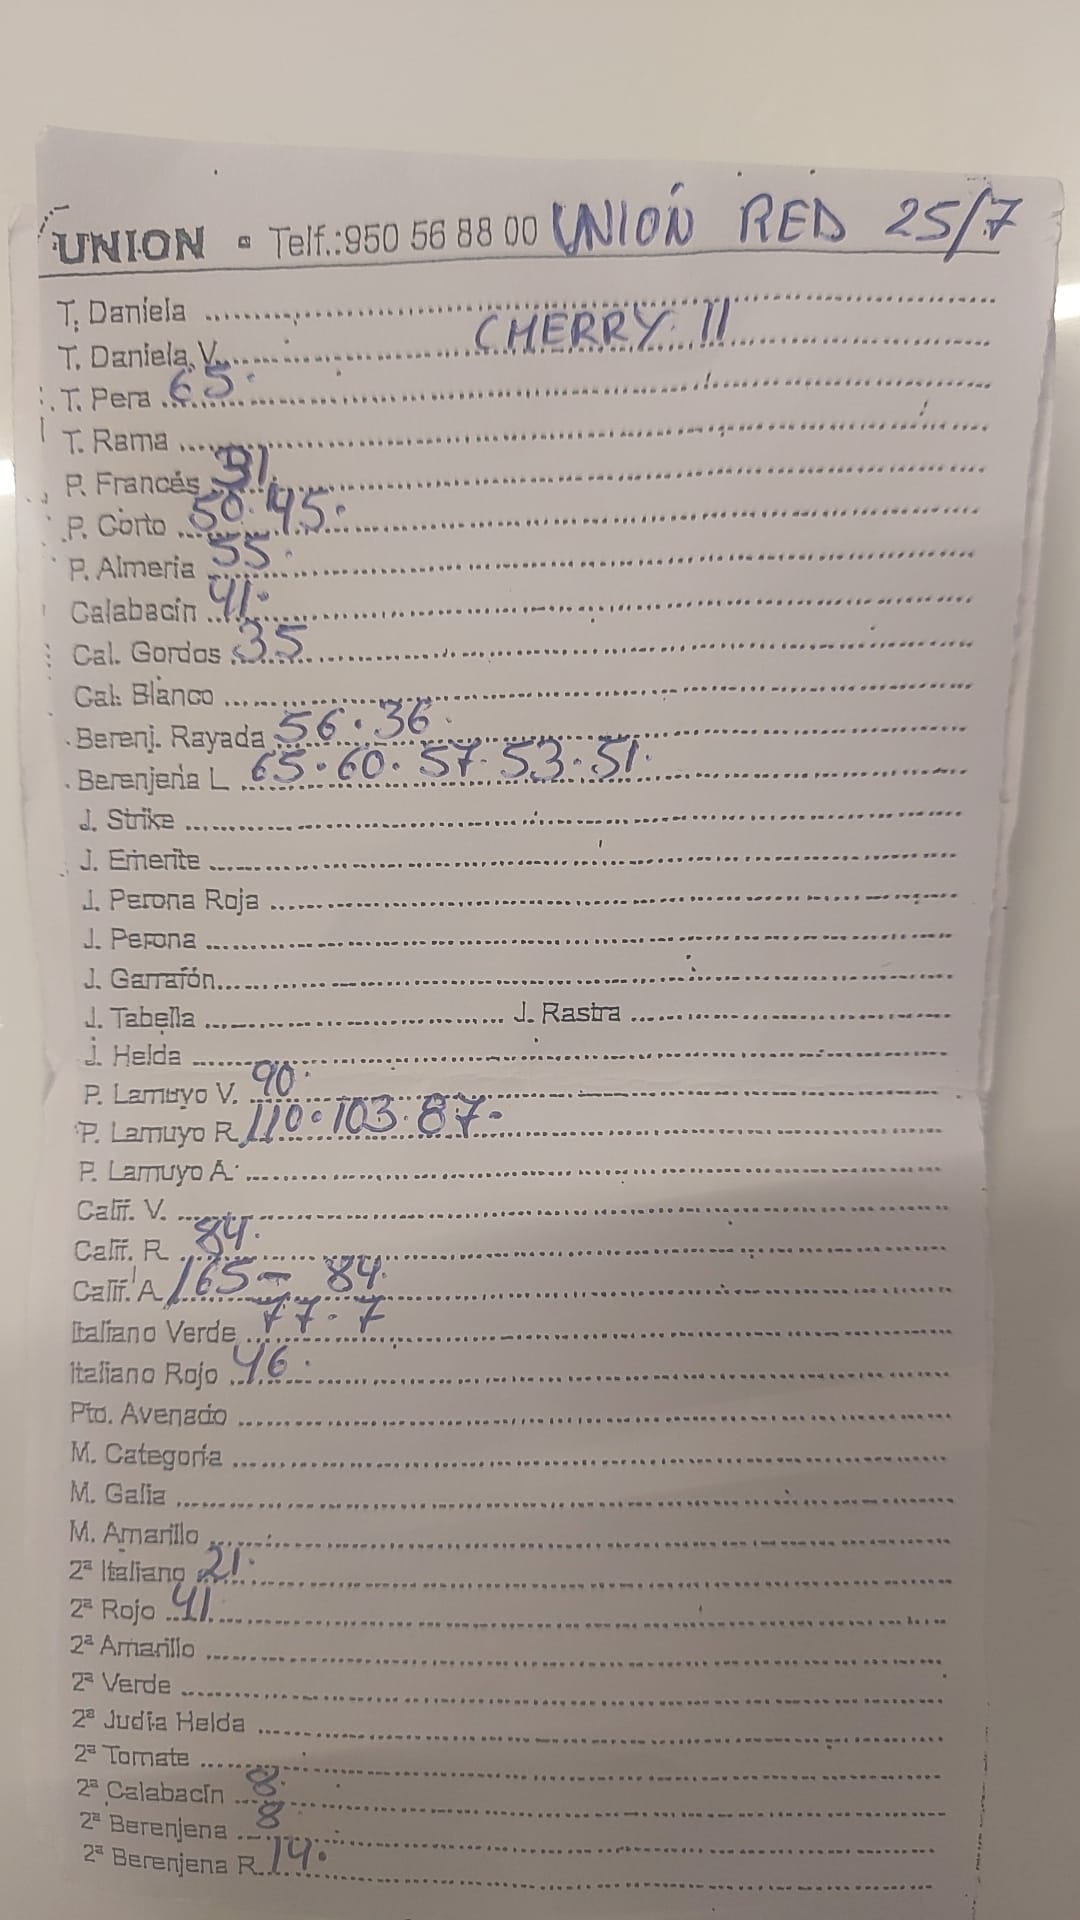 UNION - Telf.:950 56 88 00 UNIÓN RED 25/7
T. Daniela
CHERRY 11
T. Daniela V.
T. Pera 65.
T. Rama
P. Francés 31
P. Corto 50. 45.
P. Almeria 55.
Calabacin 41.
Cal. Gordos 35
Cal. Blanco
Berenj. Rayada 56. 36.
Berenjena L 65. 60. 57. 53. 51.
J. Strike
J. Emerite
J. Perona Roja
J. Perona
J. Garrafón
J. Tabella J. Rastra
J. Helda
P. Lamuyo V. 90.
P. Lamuyo R. 110. 103. 87.
P. Lamuyo A.
Calif. V.
Calif. R. 84.
Calif. A. 165 - 84.
Italiano Verde 77. 7
Italiano Rojo 46.
Pto. Avenado
M. Categoría
M. Galia
M. Amarillo
2ª Italiano 21.
2ª Rojo 41.
2ª Amarillo
2ª Verde
2ª Judía Helda
2ª Tomate
2ª Calabacín 8.
2ª Berenjena 8
2ª Berenjena R. 14.